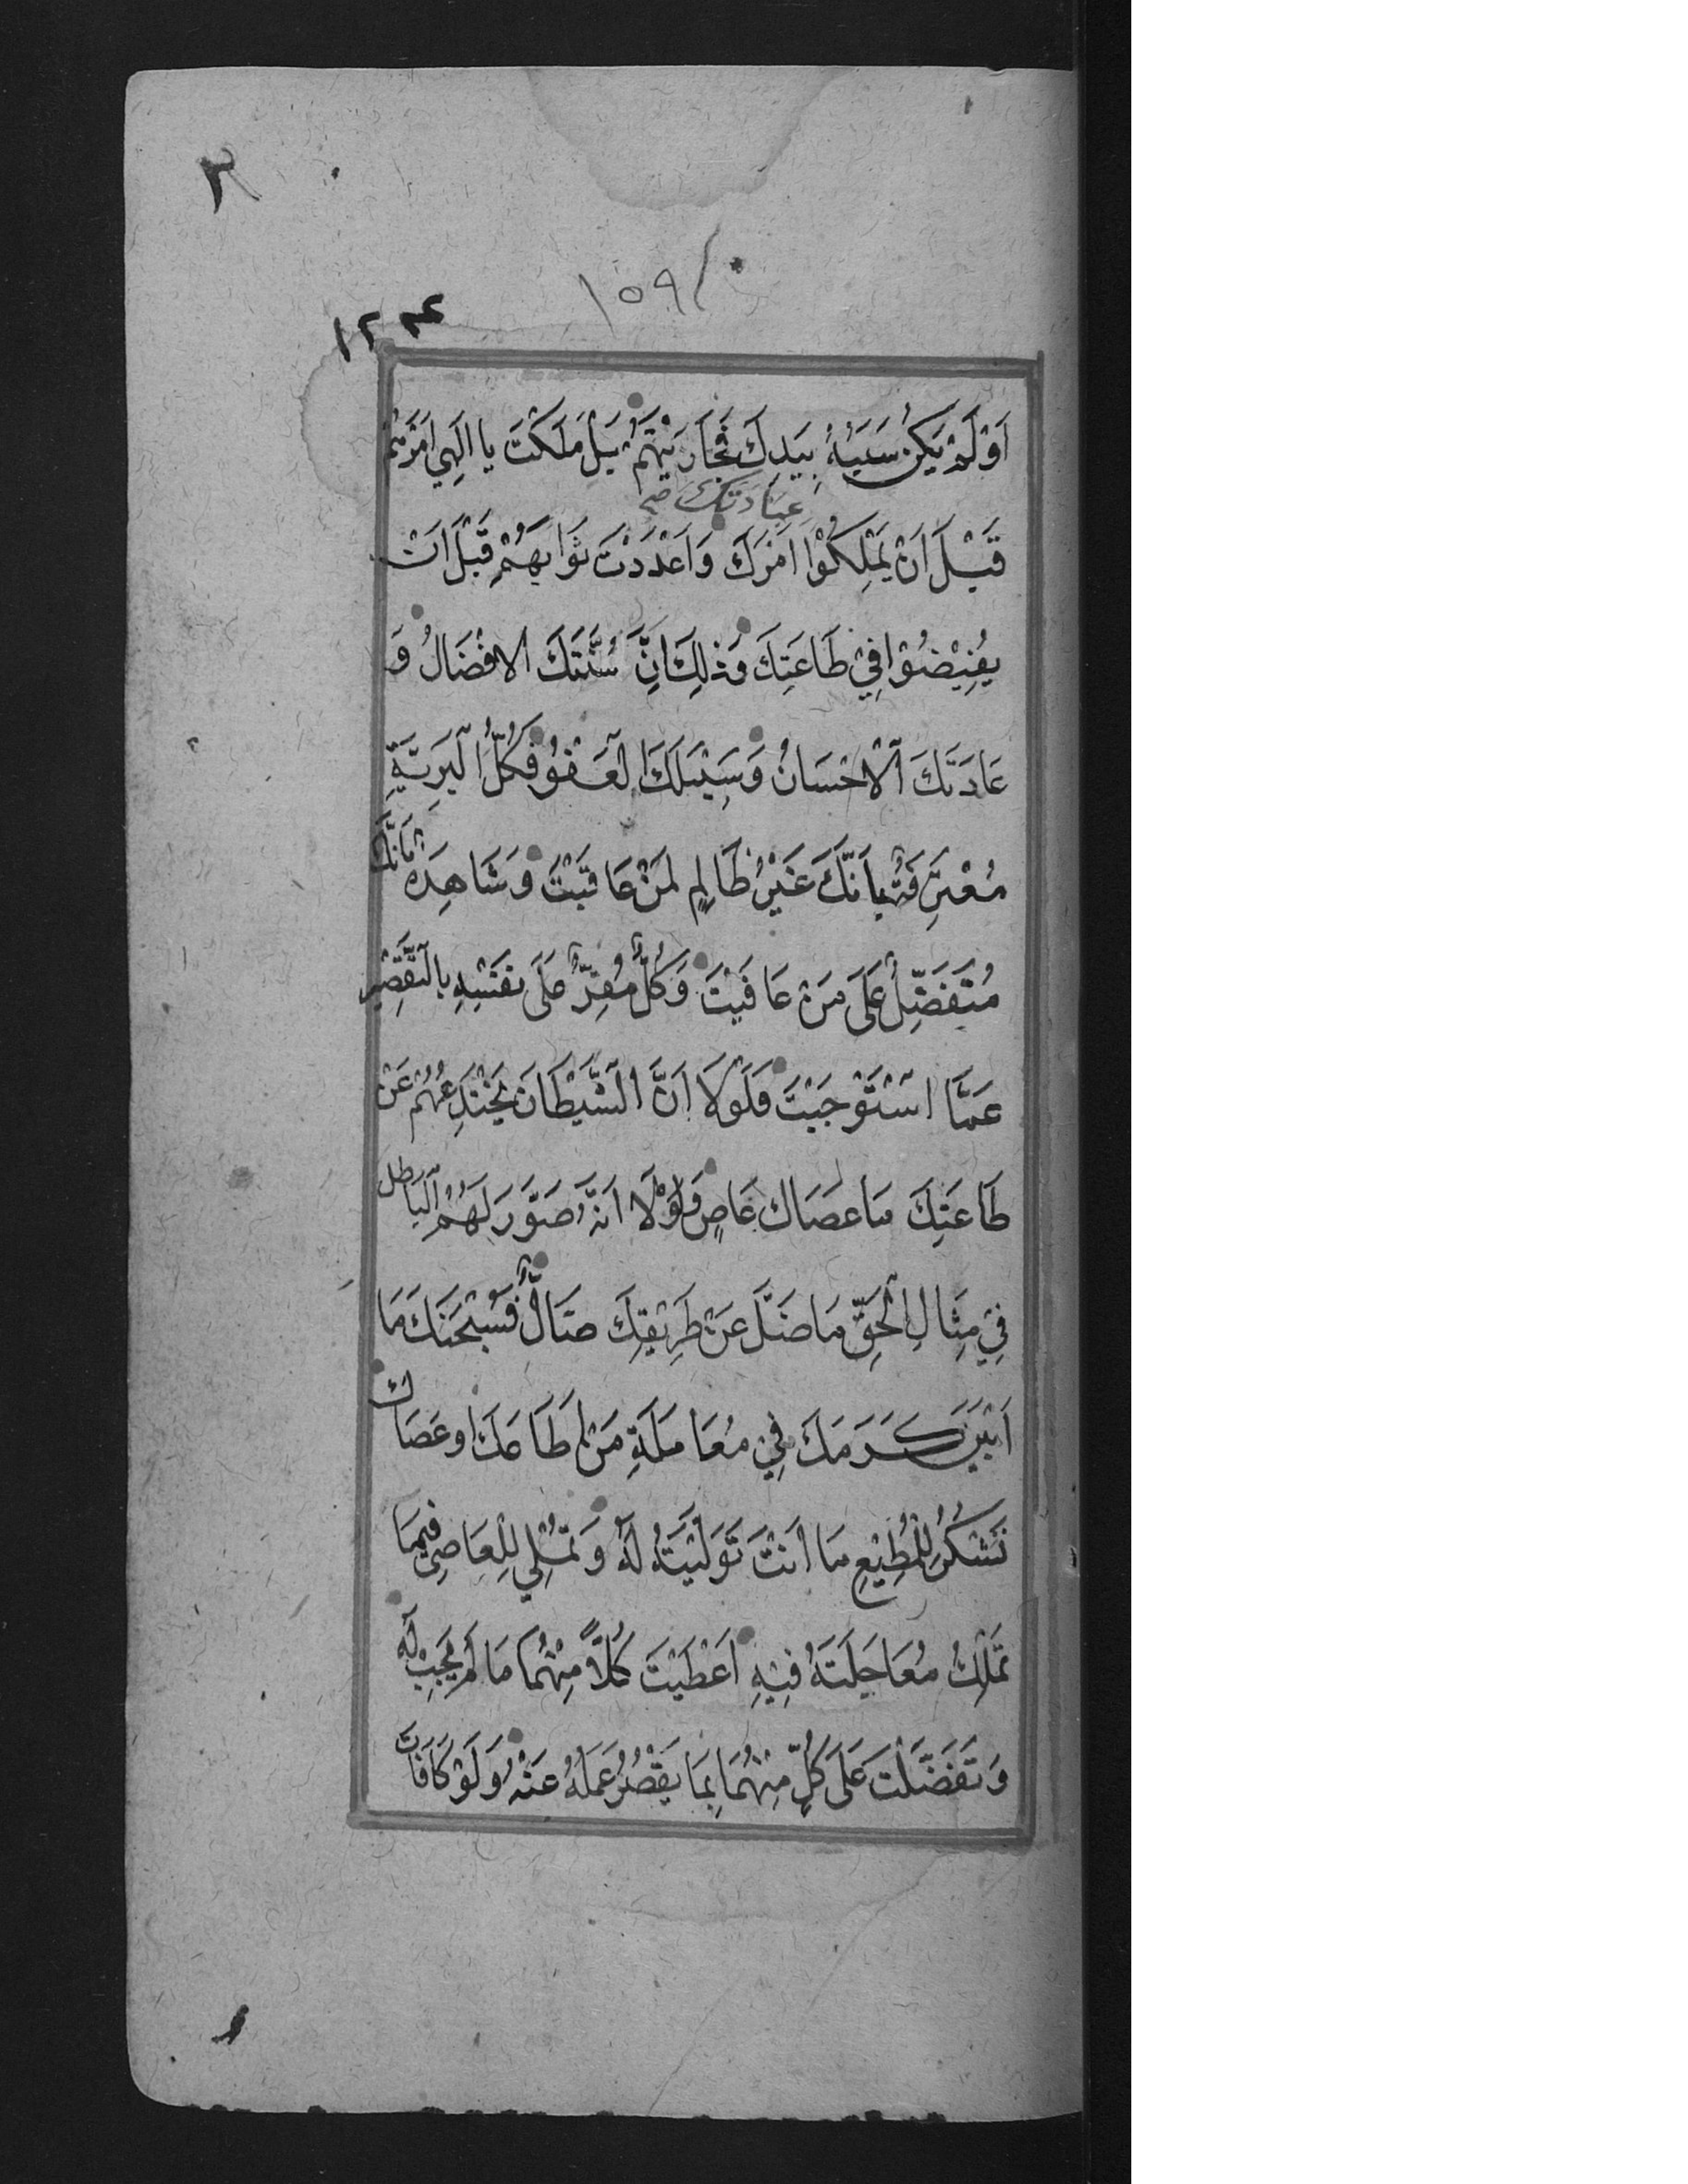 ٢
١٥٩
١٢٣٤
اَوَلَمْ يَكُنْ سَبَبُهُ بِيَدِكَ فَجَازَيْتَهُمْ بَلْ مَلَكْتَ يا اِلَهِي اَمْرَهُمْ
عِبَادَتَكَ صح
قَبْلَ اَنْ يَمْلِكُوْا اَمْرَكَ وَاَعْدَدْتَ ثَوَابَهُمْ قَبْلَ اَنْ
يُفِيْضُوْا فِيْ طَاعَتِكَ وَذلِكَ اَنَّ سُنَّتَكَ الافْضَالُ وَ
عَادَتَكَ الْاحْسَانُ وَسَبِيْلَكَ الْعَفْوُ فَكُلُّ الْبَرِيَّةِ
مُعْتَرِفَةٌ بِاَنَّكَ غَيْرُ ظَالِمٍ لِمَنْ عَاقَبْتَ وَشَاهِدَةٌ بِاَنَّكَ
مُتَفَضِّلٌ عَلَى مَنْ عَافَيْتَ وَكُلٌّ مُقِرٌّ عَلَى نَفْسِهِ بِالتَّقْصِيْرِ
عَمَّا اسْتَوْجَبْتَ فَلَوْلَا اَنَّ الشَّيْطَانَ يَخْتَدِعُهُمْ عَنْ
طَاعَتِكَ مَا عَصَاكَ عَاصٍ وَلَوْلَا اَنَّهُ صَوَّرَ لَهُمُ الْبَاطِلَ
فِيْ مِثَالِ الْحَقِّ مَا ضَلَّ عَنْ طَرِيْقِكَ ضَالٌّ فَسُبْحَنَكَ مَا
اَبْيَنَ كَرَمَكَ فِيْ مُعَامَلَةِ مَنْ اَطَاعَكَ اوعَصَاكَ
تَشْكُرُ لِلْمُطِيْعِ مَا اَنْتَ تَوَلَّيْتَهُ لَهُ وَتُمْلِي لِلْعَاصِي فِيْمَا
تَمْلِكُ مُعَاجَلَتَهُ فِيْهِ اَعْطَيْتَ كُلاًّ مِنْهُمَا مَا لَمْ يَجِبْ لَهُ
وَتَفَضَّلْتَ عَلَى كُلٍّ مِنْهُمَا بِمَا يَقْصُرُ عَمَلُهُ عَنْهُ وَلَوْ كَافَاتَ